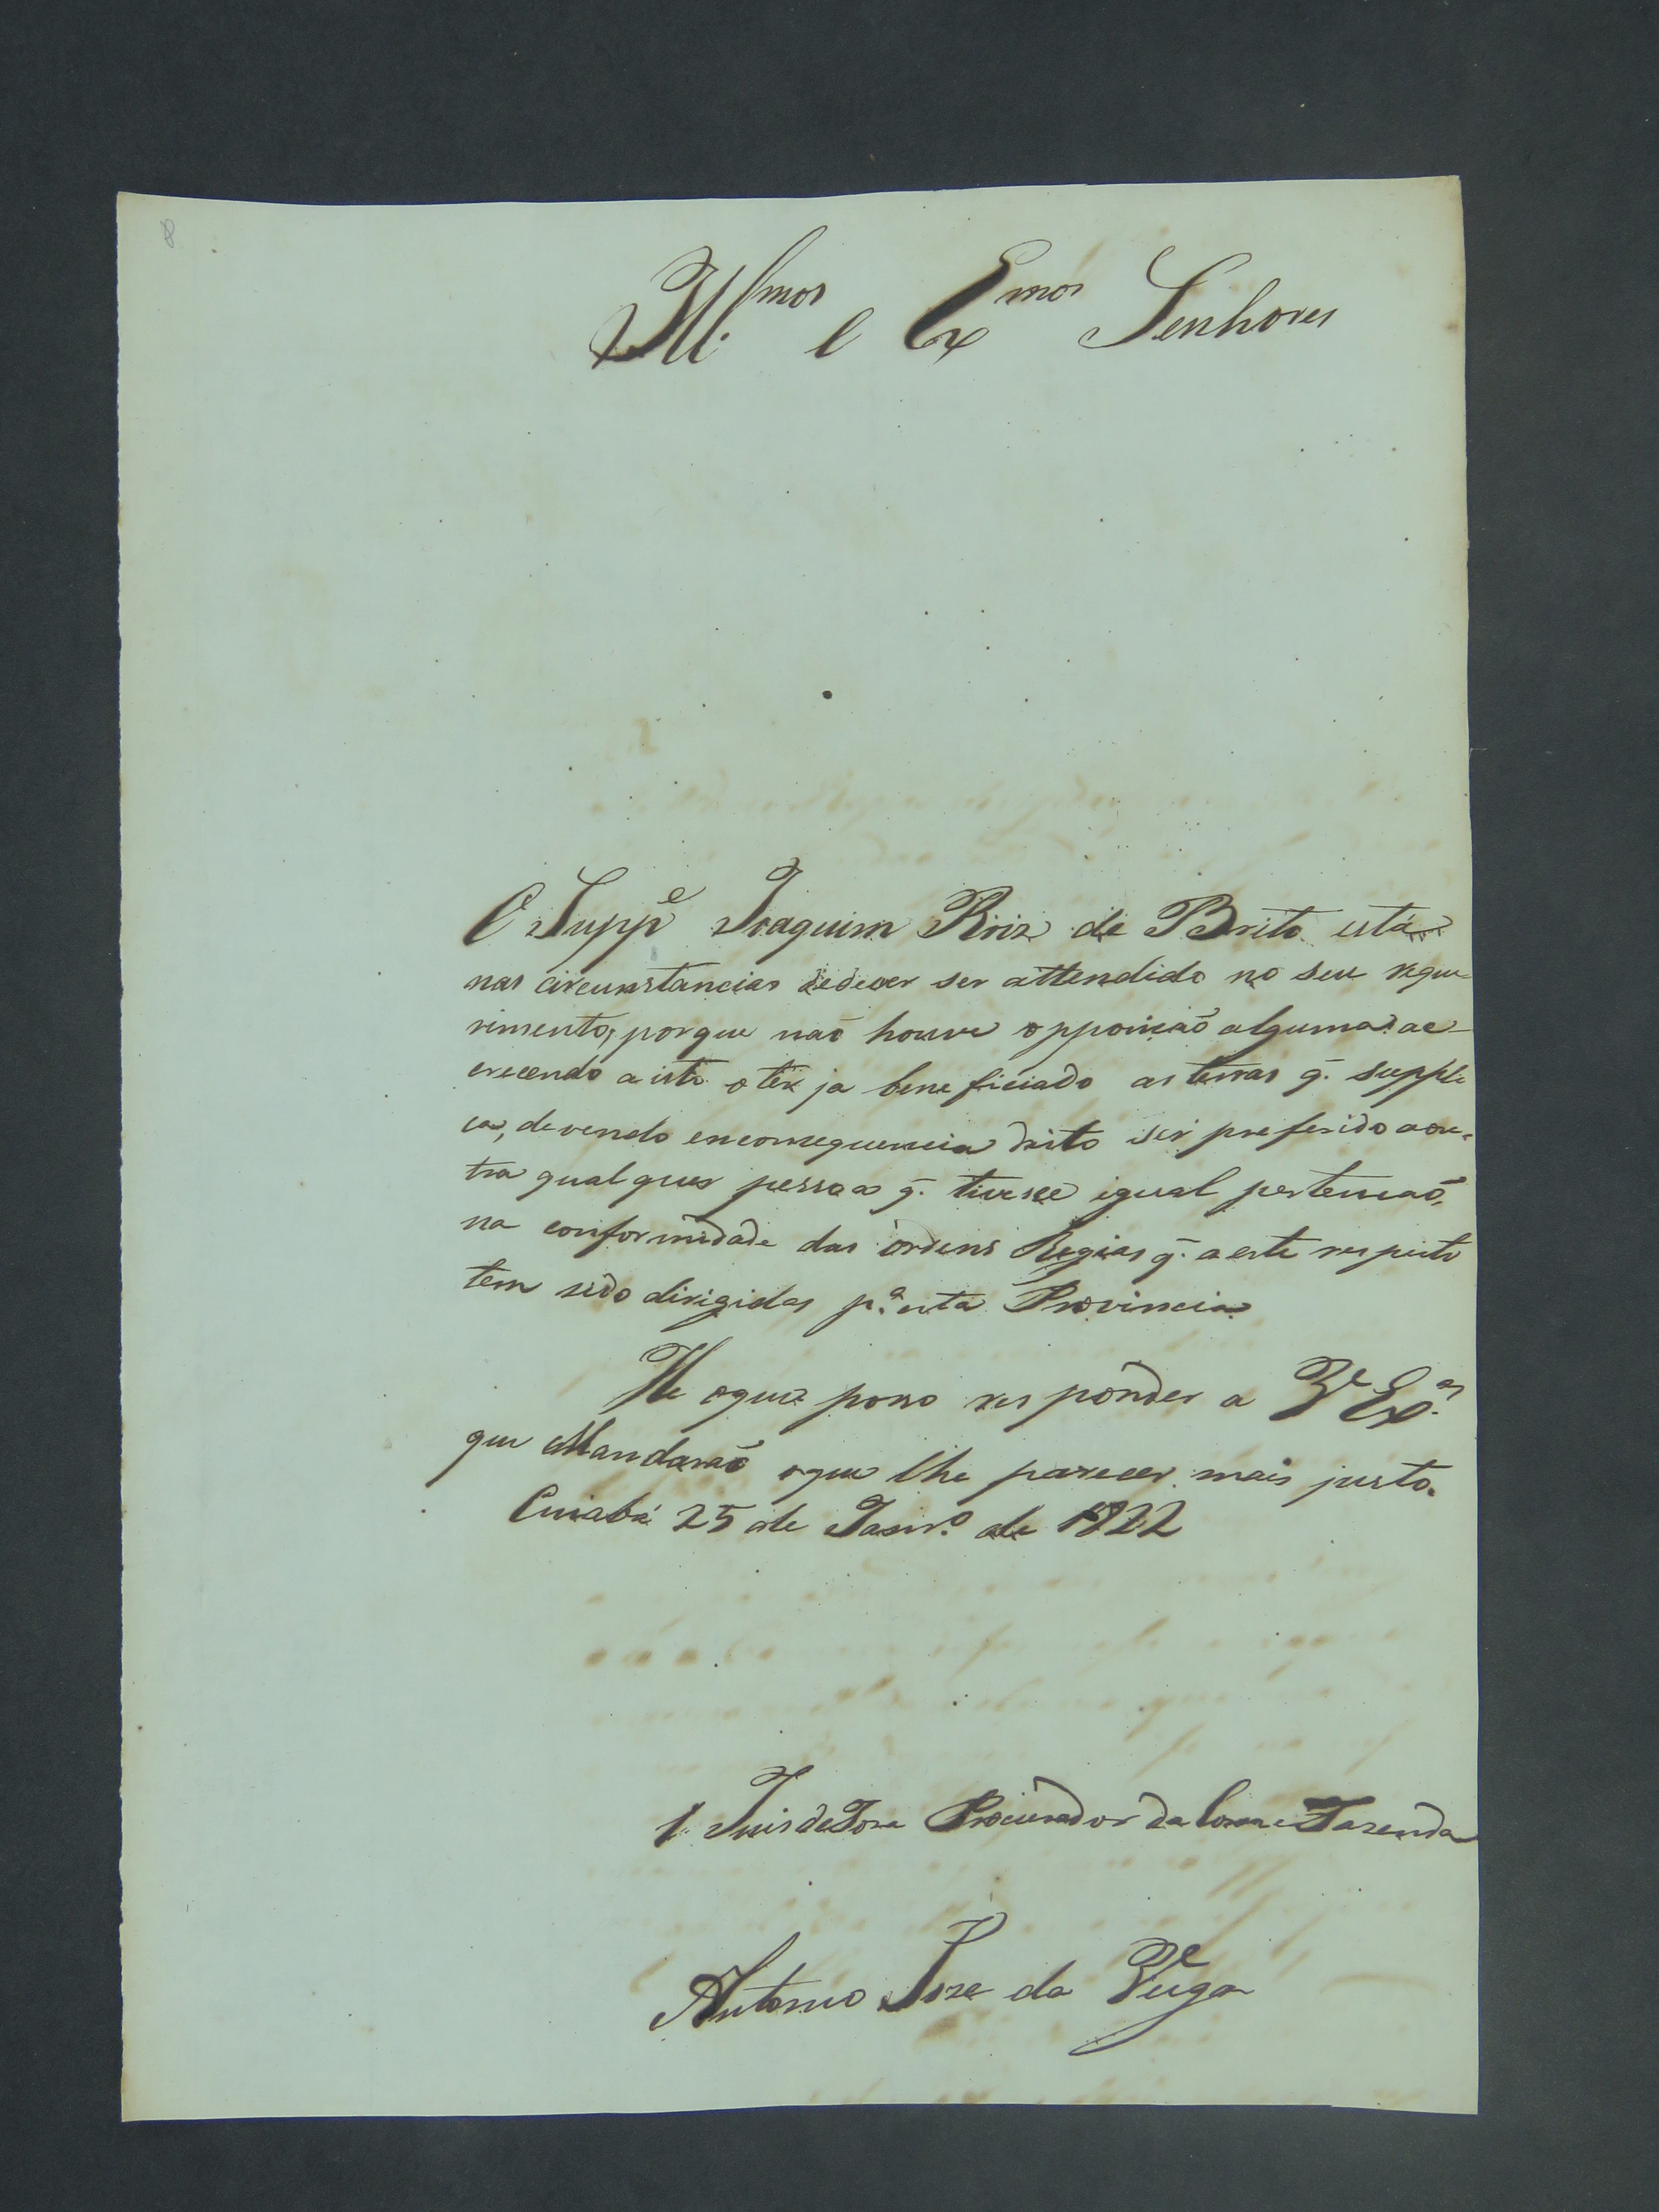 8
Ill.mos e Exmos Senhores
O Suppe Joaquim Roiz de Brito está
nas circunstancias dedever ser attendido no seu reque-
rimento, porque naõ houve opposiçaõ alguma: ac-
crecendo a isto o ter ja beneficiado as terras q. suppli
ca, devendo emconsequencia disto ser preferido aou-
tra qualquer pessoa q. tivesse igual pertençaõ,
na conformidade das ordens Regias q. a este respeito
tem sido dirigidas p.a esta Provincia.
He oque posso responder a VExas
que Mandaraõ oque lhe parecer mais justo.
Cuiabá 25 de Janr.o de 1822
O Juis de Fora Procurador da Coroa e Fazenda
Antonio Jose da Veiga